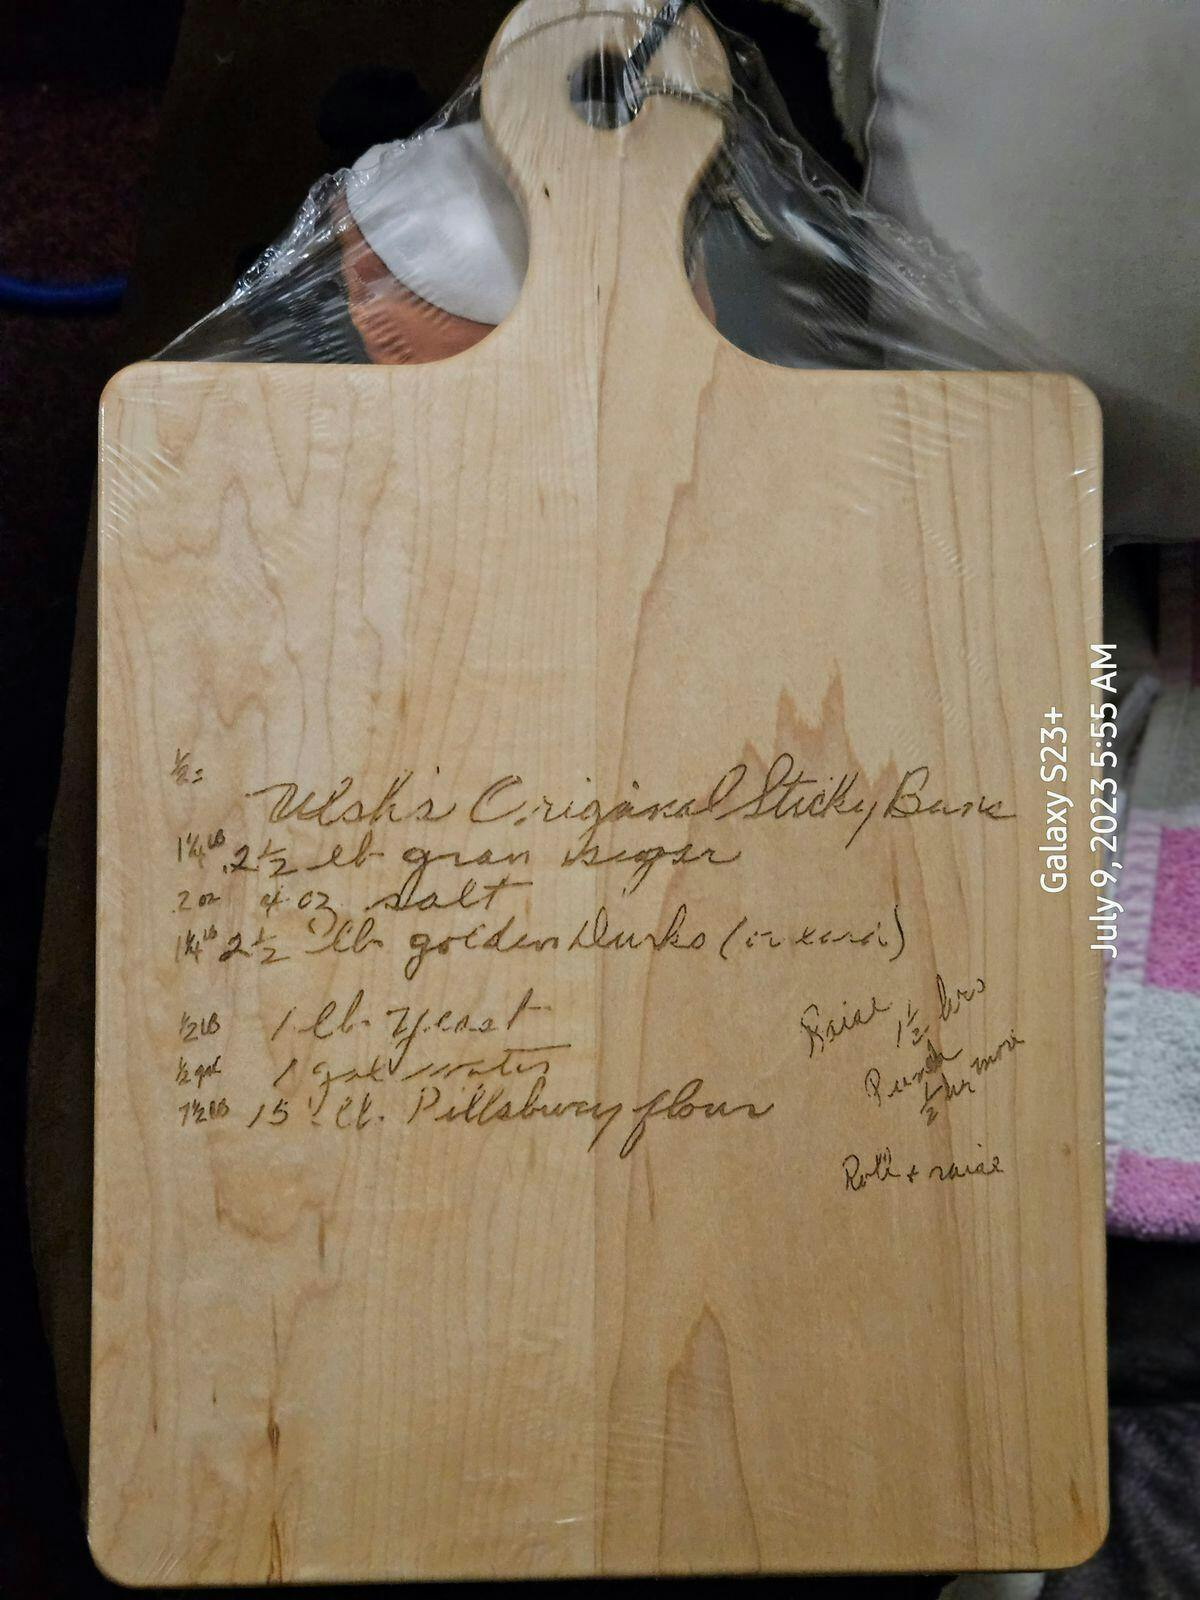 ½=
Original Sticky Buns
1¼ LB 2½ lb gran sugar
2 oz 4 oz salt
1¼ lb 2½ lb golden Durko (or
½ LB 1 lb. yeast
½ gal 1 gal water
7½ LB 15 lb. Pillsbury flour
Raise 1½ hrs
Punch
½ hr more
Roll & raise
Galaxy S23+
July 9, 2023 5:55 AM